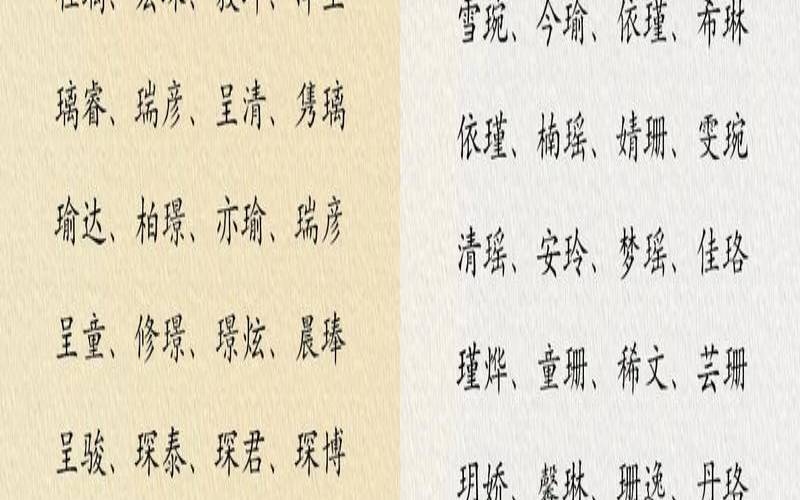 璃睿、瑞彦、呈清、隽璃
瑜达、柏璟、亦瑜、瑞彦
呈童、修璟、璟炫、晨琫
呈骏、琛泰、琛君、琛博
雪琬、今瑜、依瑾、希琳
依瑾、楠瑶、婧珊、雯琬
清瑶、安玲、梦瑶、佳珞
瑾烨、童珊、稀文、芸珊
玥娇、馨琳、珊逸、丹珞